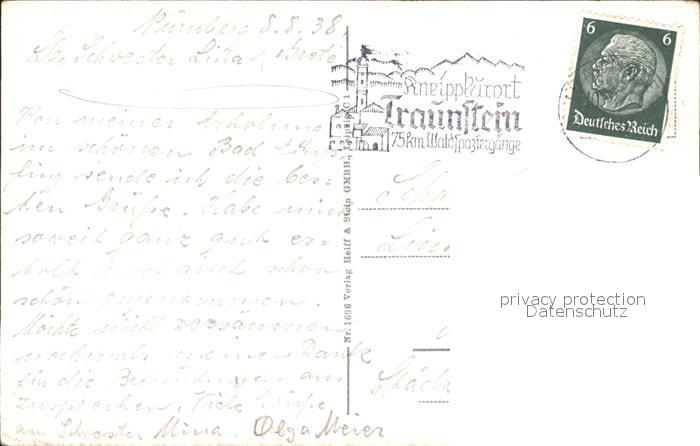 Nürnberg 8.8.38
Lb. Schwester Lina, Grete
Von meiner Erholung
im schönen Bad
sende ich die bes-
ten Grüße. Habe mich
soweit ganz gut er-
holt und auch schon
schön zugenommen.
Möchte nicht versäumen
nochmals meinen Dank
für die Bemühungen aus
zusprechen. Viele Grüße
an Schwester Mina. Olga Meier
Nr. 1696 Verlag Heiff & Stein GMBH., Leipzig C 1
Kneippkurort
Traunstein
75 km Waldspaziergänge
6 6
Deutsches Reich
Schw
privacy protection
Datenschutz